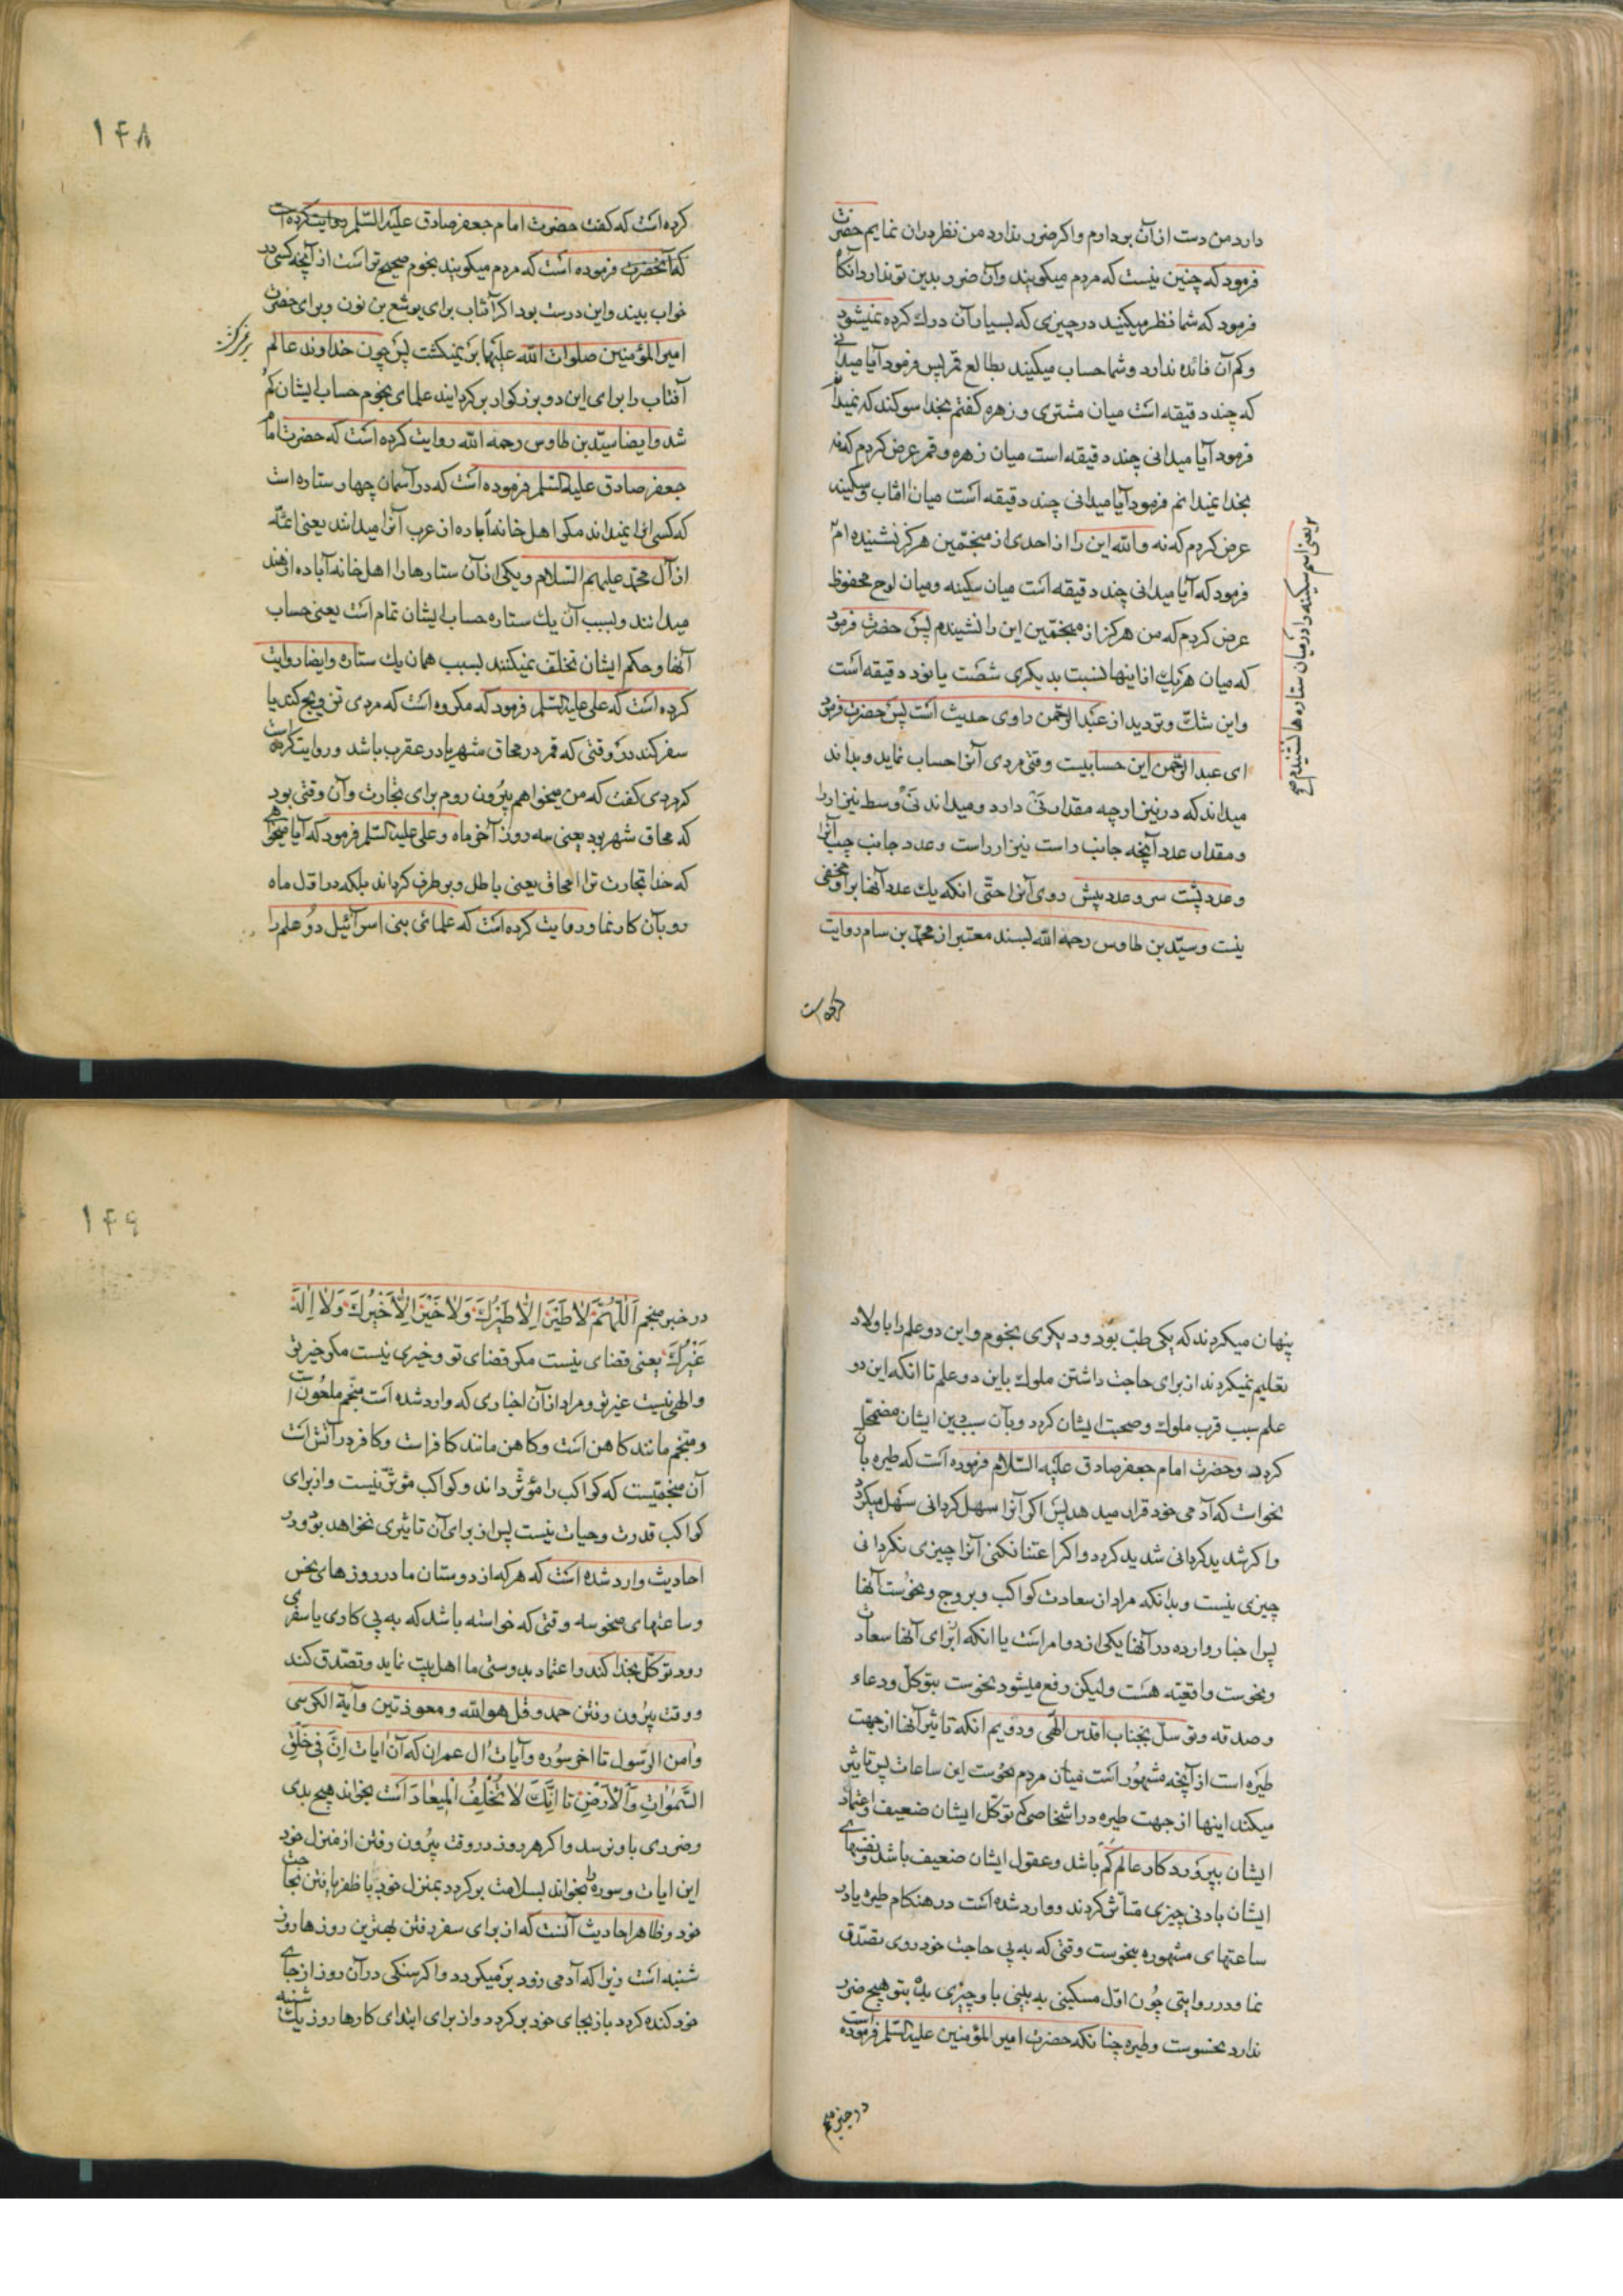 دارد من دست از آن بردارم و اکر ضرر ندارد من نظر دران نمایم حضرت
فرمود که چنین نیست که مردم میکویند وآن ضرر بدین تو ندارد انکاه
فرمود که شما نظر میکنید در چیزی که بسیار آن درك کرده نمیشود
وکم آن فائده ندارد و شما حساب میکنید بطالع قمر پس فرمود آیا میدانی
که چند دقیقه است میان مشتری و زهره کفتم بخدا سوکند که نمیدانم
فرمود آیا میدانی چند دقیقه است میان زهره و قمر عرض کردم که نه
بخدا نمیدانم فرمود آیا میدانی چند دقیقه است میان افتاب و سکینه
عرض کردم که نه والله این را از احدی از منجّمین هرکز نشنیده ام
فرمود که آیا میدانی چند دقیقه است میان سکینه ومیان لوح محفوظ
عرض کردم که من هرکز از منجّمین این را نشیندم پس حضرت فرمود
که میان هریك از اینها لنسبت بدیکری شصت یا نود دقیقه است
واین شكّ وتردید از عبد الرّحمن راوی حدیث است پس حضرت فرمود
ای عبد الرّحمن این حسابیست وقتی مردی آنرا حساب نماید و بداند
میداند که در نیزار چه مقدار نَی دارد و میداند نَی وسط نیزار را
ومقدار عدد آنچه جانب راست نیزار راست وعدد جانب چپ آنرا
وعدد پشت سر وعدد پیش روی آنرا حتّی انکه یك عدد آنها براو مخفی
نیست وسیّد بن طاوس رحمه الله بسند معتبر از محمّد بن سام روایت
کرده است
یعنی اسم سکینه را در میان ستاره ها نشنیدم صح
۱۴۸
کرده است که کفت حضرت امام جعفر صادق علیه السّلم روایت کرده است
که آنحضرت فرموده است که مردم میکویند نجوم صحیح تر است از آنچه کسی در
خواب بیند واین درست بود اکر آفتاب برای یوشع بن نون وبرای حضرت
امیر المؤمنین صلوات الله علیهما بر نمیکشت پس چون خداوند عالم
آفتاب را برای این دو بزرکوار برکردانید علمای نجوم حساب ایشان کم
شد وایضا سیّد بن طاوس رحمه الله روایت کرده است که حضرت امام
جعفر صادق علیه السّلم فرموده است که در آسمان چهار ستاره است
که کسی انرا نمیداند مکر اهل خانه آباده از عرب آنرا میدانند یعنی ائمّه
از آل محمّد علیهم السّلام ویکی از آن ستارها را اهل خانه آباده از هند
میدانند وبسبب آن یك ستاره حساب ایشان تمام است یعنی حساب
آنها وحکم ایشان تخلّف نمیکنند بسبب همان یك ستاره وایضا روایت
کرده است که علی علیه السّلم فرمود که مکروه است که مردی تزویج کند یا
سفر کند در وقتی که قمر در محاق شهر یا در عقرب باشد و روایت کرده است
که مردی کفت که من میخواهم بیرون روم برای تجارت وآن وقتی بود
که محاق شهر بود یعنی سه روز آخر ماه وعلی علیه السّلم فرمود که آیا میخواهی
که خدا تجارت ترا امحاق یعنی باطل وبرطرف کرداند بلکه در اوّل ماه
رو بآن کار نما و روایت کرده است که علمای بنی اسرآئیل دو علم را
۱۴۹
پنهان میکردند که یکی طبّ بود و دیکری نجوم واین دو علم را باولاد
تعلیم نمیکردند از برای حاجت داشتن ملوك باین دو علم تا انکه این دو
علم سبب قرب ملوك وصحبت ایشان کردد وبآن سبب دین ایشان مضمحلّ
کردد وحضرت امام جعفر صادق علیه السّلام فرموده است که طیره بآن
نحو است که آدمی خود قرار میدهد پس اکر آنرا سهل کردانی سهل میکردد
واکر شدید کردانی شدید کردد و اکر اعتنا نکنی آنرا چیزی نکردانی
چیزی نیست و بدانکه مراد از سعادت کواکب وبروج ونحوست آنها
پس اخبار وارده در آنها یکی از دو امر است یا انکه از برای آنها سعادت
ونحوست واقعیّه هست ولیکن رفع میشود نحوست بتوکّل ودعاء
وصدقه وتوسّل بجناب اقدس الهی ودویم انکه تاثیر آنها از جهت
طیره است از آنچه مشهور است میان مردم نحوست این ساعات پس تاثیر
میکند اینها از جهت طیره در اشخاصی که توکّل ایشان ضعیف و اعتماد
ایشان بپروردکار عالم کم باشد وعقول ایشان ضعیف باشد و نفسهای
ایشان بادنی چیزی متاثّر کردند و وارد شده است در هنکام طیره یا در
ساعتهای مشهوره بنحوست وقتی که به پی حاجت خود روی تصدّق
نما ودر روایتی چون اوّل مسکینی به بینی باو چیزی بده بتو هیچ ضرر
ندارد نحوست وطیره چنانکه حضرت امیر المؤمنین علیه السّلم فرموده است
در خبر منجم
در خبر منجم اَللّٰهُمَّ لا طَیْرَ اِلّا طَیْرُكَ وَلا خَیْرَ اِلّا خَیْرُكَ وَلا اِلٰهَ
غَیْرُكَ یعنی قضای نیست مکر قضای تو و خیری نیست مکر خیر تو
والهی نیست غیر تو و مراد از آن اخباری که وارد شده است منجّم ملعون است
ومنجّم مانند کاهن است وکاهن مانند کافر است وکافر در آتش است
آن منجّمیست که کواکب را مؤثر داند و کواکب مؤثر نیست واز برای
کواکب قدرت وحیات نیست پس از برای آن تاثیری نخواهد بود و در
احادیث وارد شده است که هر که از دوستان ما در روزهای نحس
وساعتهای منحوسه وقتی که خواسته باشد که به پی کاری یا سفری
رود توکّل بخدا کند واعتماد بدوستی ما اهل بیت نماید وتصدّق کند
و وقت بیرون رفتن حمد وقل هو الله و معوذتین وآیة الکرسی
وامن الرّسول تا اخر سوره وآیات ال عمران که آن ایات اِنَّ فی خَلْقِ
السَّمٰوٰاتِ وَالْاَرْضِ تا اِنَّكَ لا تُخْلِفُ الْمِیعادَ است بخواند هیچ بدی
وضرری باو نرسد واکر هر روز در وقت بیرون رفتن از منزل خود
این ایات وسوره را بخواند بسلامت برکردد بمنزل خود با ظفر یافتن بحاجت
خود وظاهر احادیث آنست که از برای سفر رفتن بهترین روزها روز
شنبه است زیرا که آدمی زود بر میکردد واکر سنکی در آن روز از جای
خود کنده کردد باز بجای خود برکردد و از برای ابتدای کارها روز یك شنبه